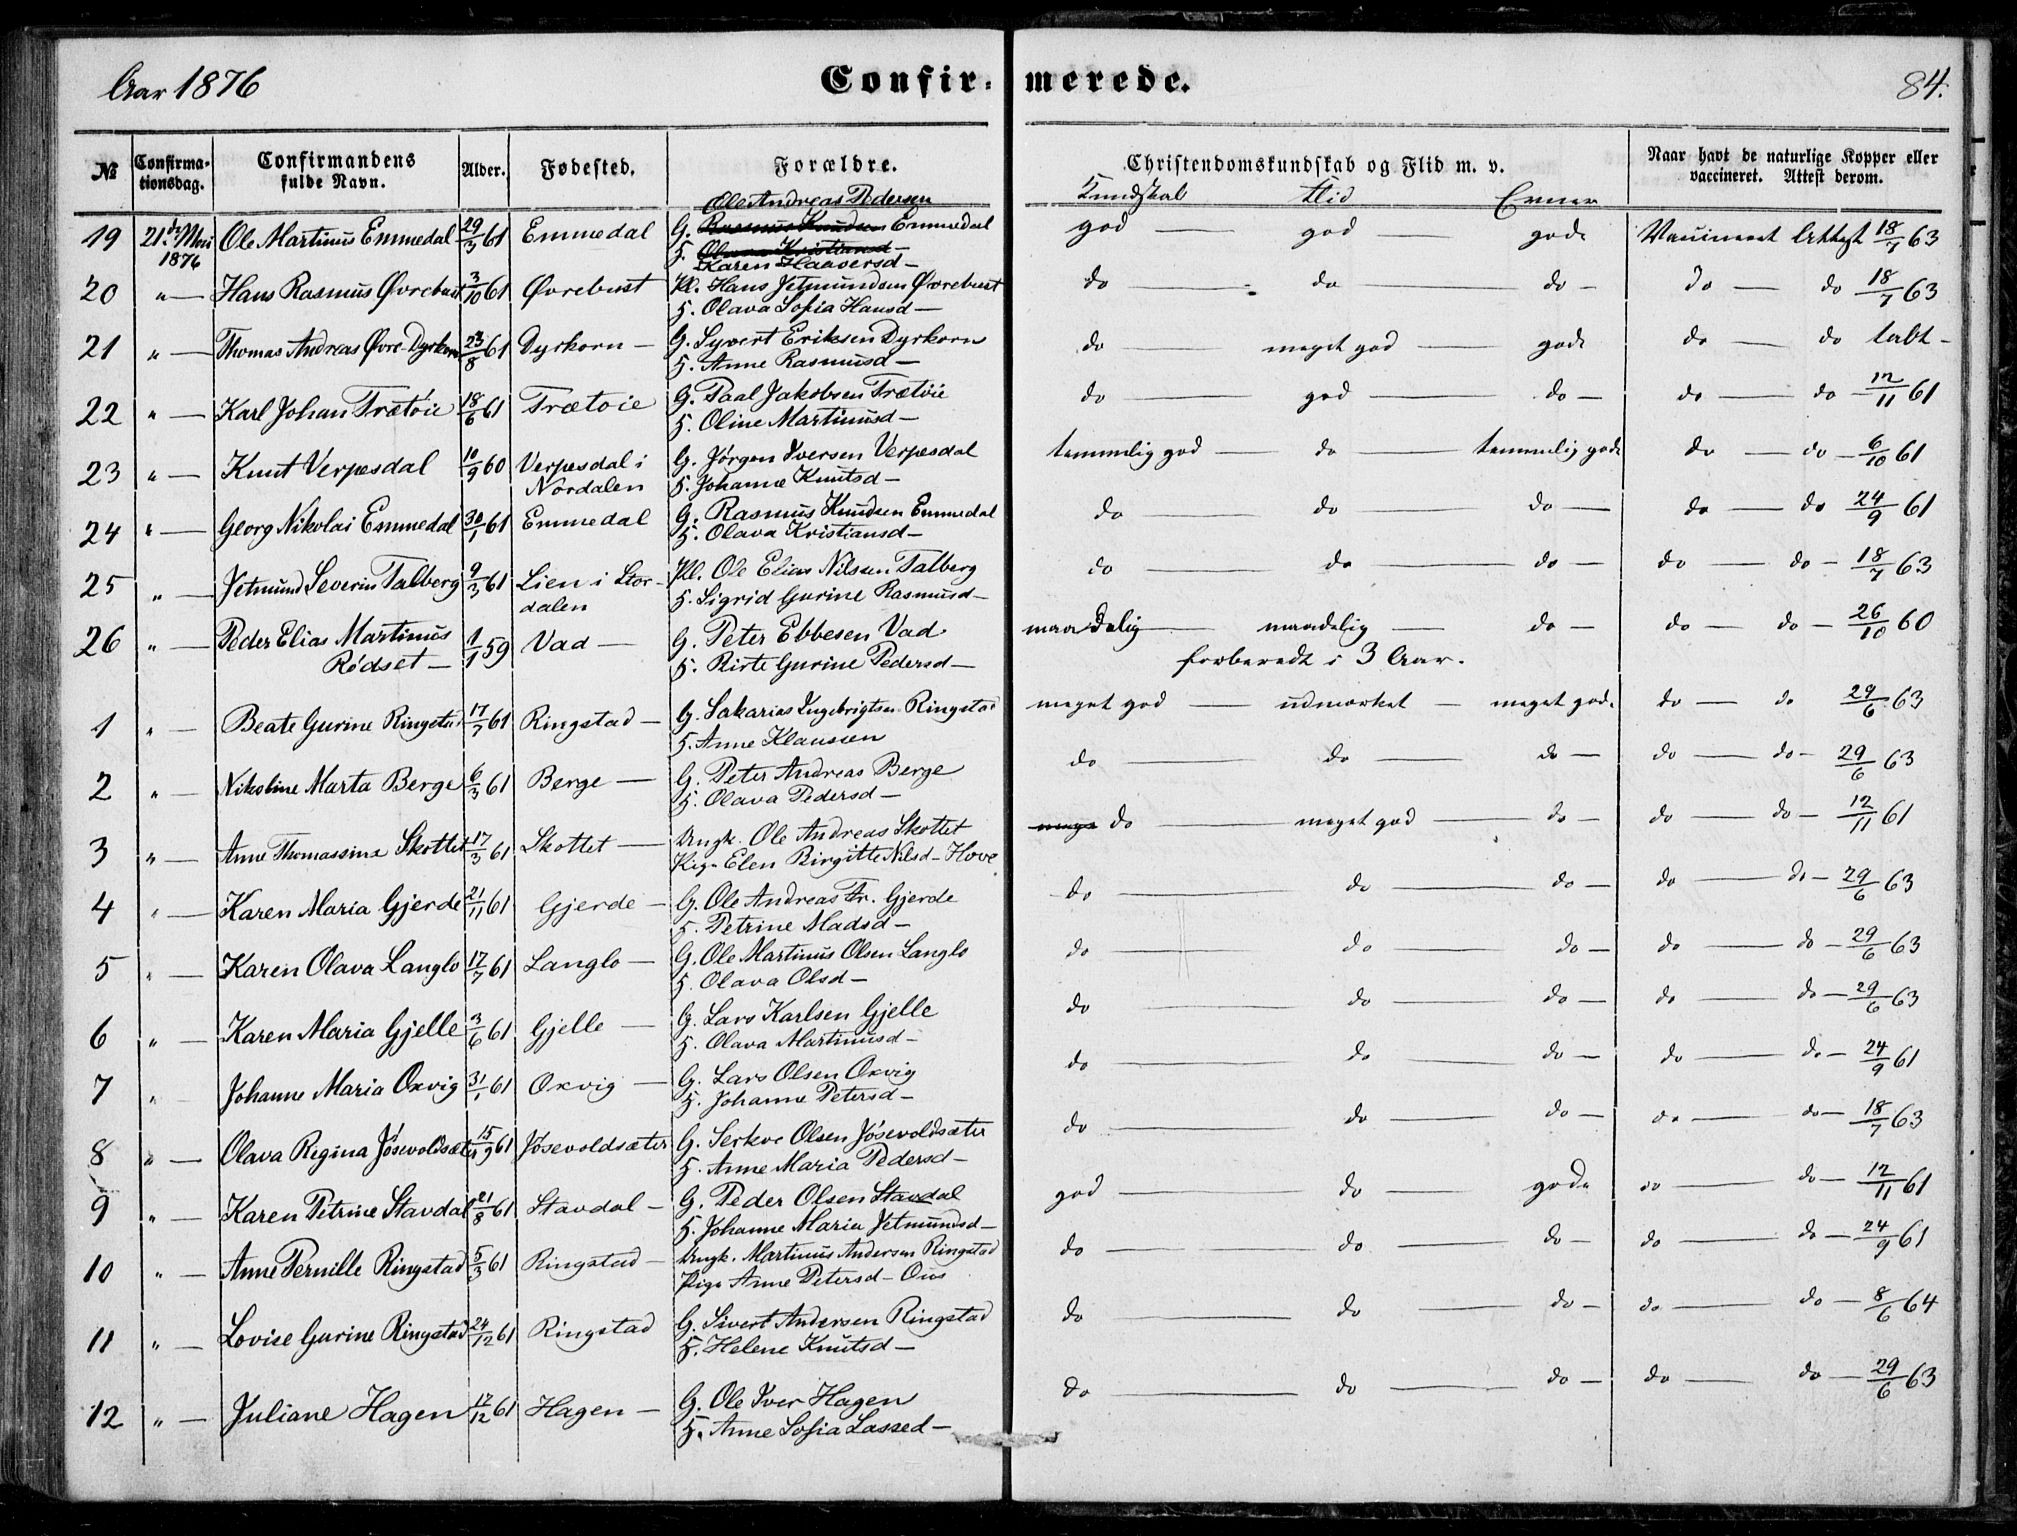 Aar 1876 Confir- merede. 84.
№ Confirma-tionsdag. Confirmandens fulde Navn. Alder. Fødested. Forældre. Christendomskundskab og Flid m. v. Naar havt de naturlige Kopper eller vaccineret. Attest derom.
Kundskab Flid Evner
Ole Andreas Pedersen
19 21de Mai 1876 Ole Martinus Emmedal 29/3 61 Emmedal G. Rasmus Knudsen Emmedal god — god — gode Vaccineret Attest 18/7 63
H. Olava Kristiansd —
Karen Haaversd —
20 " — Hans Rasmus Øvrebust 3/10 61 Øvrebust Pl. Hans Jetmundsen Øvrebust do — do — do — do — do 18/7 63
H. Olava Sofia Hansd —
21 " — Thomas Andreas Øvre-Dyrkorn 23/8 61 Dyrkorn — G. Syvert Eriksen Dyrkorn do meget god — gode do — do tabt —
H. Anne Rasmusd —
22 " — Karl Johan Trætøie 18/6 61 Trætoie G. Paal Jakobsen Trætøie do — god — do — do — do — 12/11 61
H. Oline Martinusd —
23 " — Knut Verpesdal 10/9 60 Verpesdal i G. Jørgen Iversen Verpesdal temmelig god — do — temmelig gode do — do — 6/10 61
Nordalen H. Johanne Knutsd —
24 " — Georg Nikolai Emmedal 30/1 61 Emmedal G. Rasmus Knudsen Emmedal do — do — do — do — do 24/9 61
H. Olava Kristiansd —
25 " — Jetmund Severin Talberg 9/3 61 Lien i Stor- Pl. Ole Elias Nilsen Talberg do — do — do — do — do — 18/7 63
dalen H. Sigrid Gurine Rasmusd —
26 " — Peder Elias Martinus 1/1 59 Vad — G. Peter Ebbesen Vad maadelig — maadelig — do — do — do — 26/10 60
Rødset — H. Birte Gurine Pedersd — forberedt i 3 Aar.
1 " — Beate Gurine Ringstad 17/7 61 Ringstad — G. Sakarias Ingebrigtsen Ringstad meget god — udmærket — meget gode do — do 29/6 63
H. Anne Klaussen
2 " — Nikoline Marta Berge 6/3 61 Berge — G. Peter Andreas Berge do — do — do — do — do — 29/6 63
H. Olava Pedersd —
3 " — Anne Thomassine Skottet 17/3 61 Skottet — Ungk. Ole Andreas Skottet do — meget god — do — do — do — 12/11 61
Pige Elen Birgitte Nilsd — Hove
4 " — Karen Maria Gjerde 21/11 61 Gjerde — G. Ole Andreas Tr. Gjerde do — do — do — do — do — 29/6 63
H. Petrine Madsd —
5 " — Karen Olava Langlo 17/7 61 Langlo — G. Ole Martinus Olsen Langlo do — do — do — do — do — 29/6 63
H. Olava Olsd —
6 " — Karen Maria Gjelle 3/6 61 Gjelle — G. Lars Karlsen Gjelle do — do — do — do — do — 29/6 63
H. Olava Martinusd —
7 " — Johanne Maria Oxvig 31/1 61 Oxvig — G. Lars Olsen Oxvig do — do — do — do — do — 24/9 61
H. Johanne Petersd —
8 " — Olava Regina Jøsevoldsæt 15/9 61 Jøsevoldsæter G. Serkve Olsen Jøsevoldsæter do — do — do — do — do — 18/7 63
H. Anne Maria Pedersd —
9 " — Karen Petrine Stavdal 21/8 61 Stavdal — G. Peder Olsen Stavdal god — do — gode do — do — 12/11 61
H. Johanne Maria Jetmundsd —
10 " — Anne Pernille Ringstad 5/3 61 Ringstad — Ungk. Martinus Andersen Ringstad do — do — do — do — do — 24/9 61
Pige Anne Petersd — Ous
11 " — Lovise Gurine Ringstad 24/12 61 Ringstad G. Sivert Andersen Ringstad do — do — do — do — do — 8/6 64
H. Helene Knutsd —
12 " — Juliane Hagen 17/12 61 Hagen — G. Ole Iver Hagen do — do — do — do — do — 29/6 63
H. Anne Sofia Lassed —